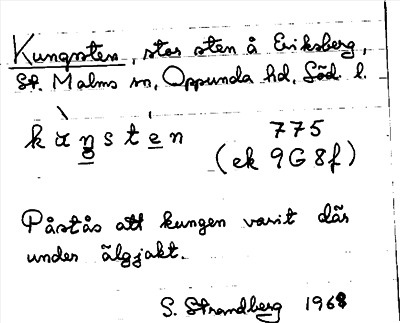 Kungssten, stor sten å Eriksberg,
St. Malms sn, Oppunda hd, Söd. l.
kuŋsten 775
(ek 9G8f)
Påstås att kungen varit där
under älgjakt.
S. Strandberg 1968